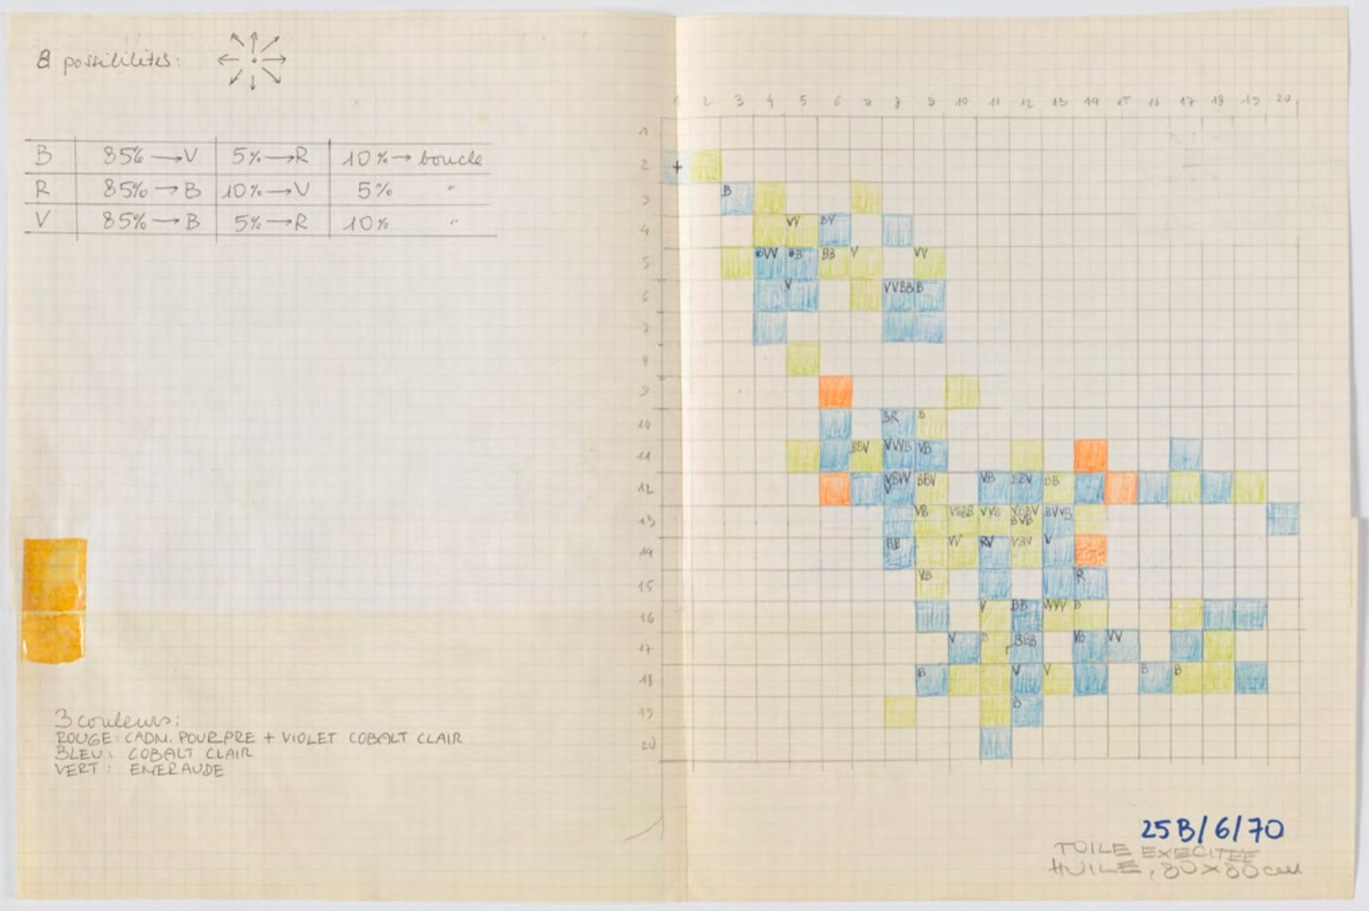 8 possibilités:
B 85% → V 5% → R 10% → boucle
R 85% → B 10% → V 5% "
V 85% → B 5% → R 10% "
3 couleurs:
ROUGE: CADM. POURPRE + VIOLET COBALT CLAIR
BLEU: COBALT CLAIR
VERT: EMERAUDE
1 2 3 4 5 6 7 8 9 10 11 12 13 14 15 16 17 18 19 20
1
2 +
3 B
4 VV BV
5 BVV BB BB V VV
6 V VVBB B
7
8
9
10 BR B
11 BBV VVVB VB
12 VBVV V BBV VB BBV BB
13 VB VVBB VVB VBBV BVB BVVB
14 BB VV RV VBV V
15 VB R
16 V BB VVV B
17 V B BBB VB VV
18 B V V B B
19 B
20
25B/6/70
TOILE EXECUTEE
HUILE, 80x80cm